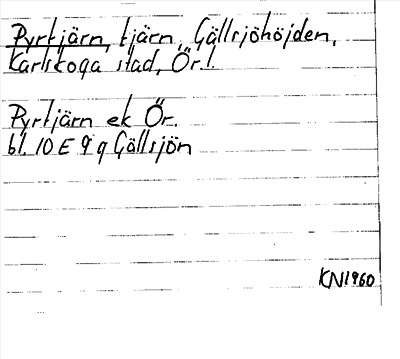 Pyrtjärn, tjärn, Gällsjöhöjden,
Karlskoga stad, Ör. l.
Pyrtjärn ek Ör.
bl. 10 E 9 g Gällsjön
KN1960